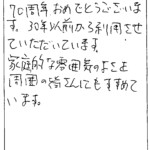 70周年おめでとうございま
す。30年以前から利用させ
ていただいています。
家庭的な雰囲気のよさを
周囲の皆さんにもすすめて
います。